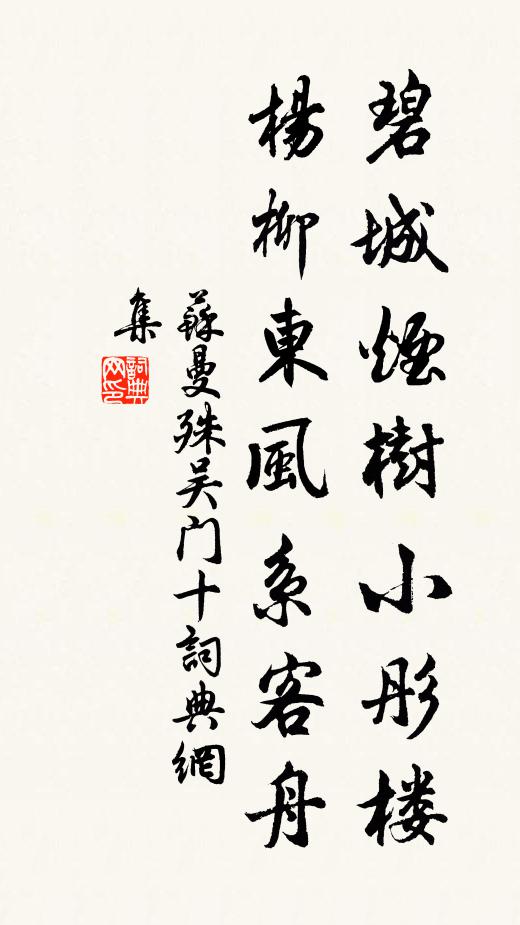 碧城煙樹小彤楼
楊柳東風系客舟
蘇曼殊吴门十詞典網
集
詞典
网印